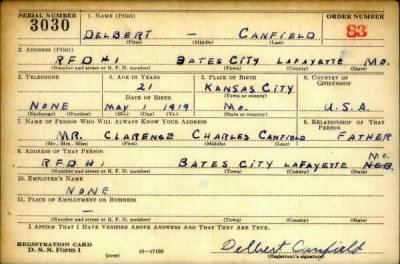 SERIAL NUMBER 1. NAME (Print) ORDER NUMBER
3030 DELBERT — CANFIELD 83
(First) (Middle) (Last)
2. ADDRESS (Print)
RFD #1 BATES CITY LAFAYETTE MO.
(Number and street or R. F. D. number) (Town) (County) (State)
3. TELEPHONE 4. AGE IN YEARS 5. PLACE OF BIRTH 6. COUNTRY OF CITIZENSHIP
21 KANSAS CITY
DATE OF BIRTH (Town or county)
NONE MAY 1 1919 MO. U.S.A.
(Exchange) (Number) (Mo.) (Day) (Yr.) (State or country)
7. NAME OF PERSON WHO WILL ALWAYS KNOW YOUR ADDRESS 8. RELATIONSHIP OF THAT PERSON
MR. CLARENCE CHARLES CANFIELD FATHER
(Mr., Mrs., Miss) (First) (Middle) (Last)
9. ADDRESS OF THAT PERSON
RFD #1 BATES CITY LAFAYETTE MO.
(Number and street or R. F. D. number) (Town) (County) (State)
10. EMPLOYER'S NAME
NONE
11. PLACE OF EMPLOYMENT OR BUSINESS
—
(Number and street or R. F. D. number) (Town) (County) (State)
I AFFIRM THAT I HAVE VERIFIED ABOVE ANSWERS AND THAT THEY ARE TRUE.
REGISTRATION CARD
D. S. S. Form 1 16—17105 Delbert Canfield
(Registrant's signature)